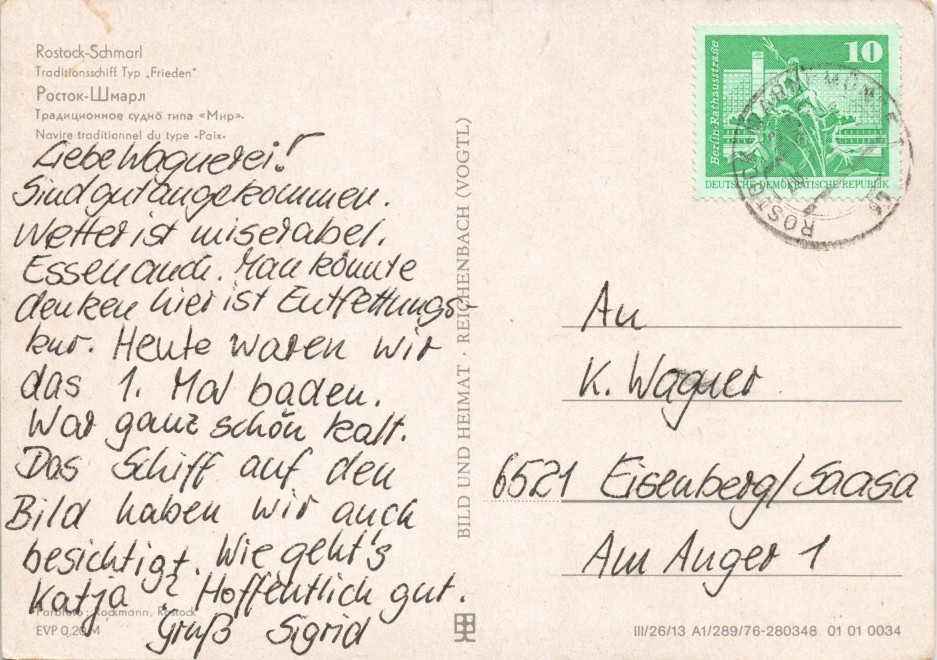 Rostock-Schmarl
Traditionsschiff Typ „Frieden"
Росток-Шмарл
Традиционное судно типа «Мир».
Navire traditionnel du type «Paix»
Liebe Wagnerei!
Sind gut angekommen.
Wetter ist miserabel.
Essen auch. Man könnte
denken hier ist Entfettungs-
kur. Heute waren wir
das 1. Mal baden.
War ganz schön kalt.
Das Schiff auf den
Bild haben wir auch
besichtigt. Wie geht's
Katja? Hoffentlich gut.
Gruß Sigrid
Farbfoto: Kockmann, Rostock
EVP 0,20 M
BILD UND HEIMAT · REICHENBACH (VOGTL)
10
Berlin-Rathausstraße
DEUTSCHE DEMOKRATISCHE REPUBLIK
ROSTOCK WARNEMÜNDE 1
An
K. Wagner
6521 Eisenberg/Saasa
Am Anger 1
III/26/13 A1/289/76-280348 01 01 0034